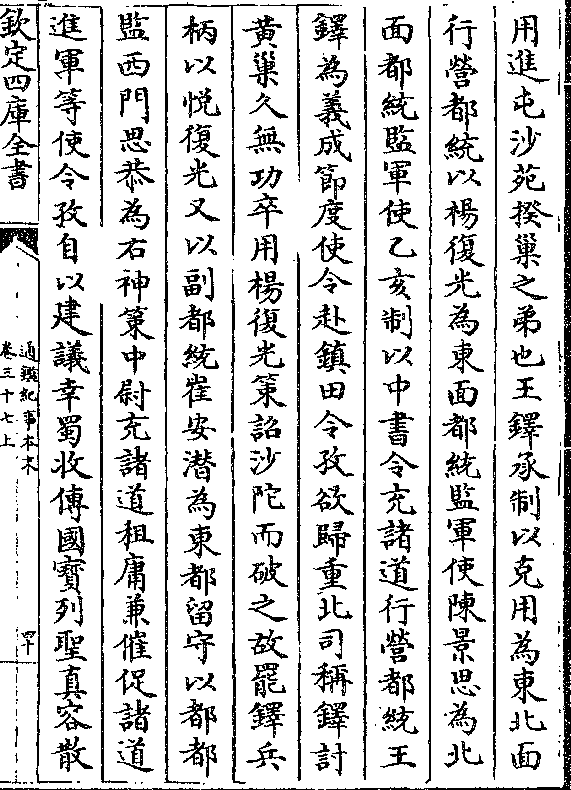 用進屯沙苑揆巢之弟也王鐸承制以克用為東北面
行營都統以楊復光為東面都統監軍使陳景思為北
面都統監軍使乙亥制以中書令充諸道行營都統王
鐸為義成節度使令赴鎮田令孜欲歸重北司稱鐸討
黃巢久無功卒用楊復光策詔沙陀而破之故罷鐸兵
柄以悅復光又以副都統崔安潛為東都留守以都都
監西門思恭為右神策中尉充諸道租庸兼催促諸道
進軍等使令孜自以建議幸蜀收傳國寶列聖真容散
欽定四庫全書
通鑑紀事本末
卷三十七上
四十